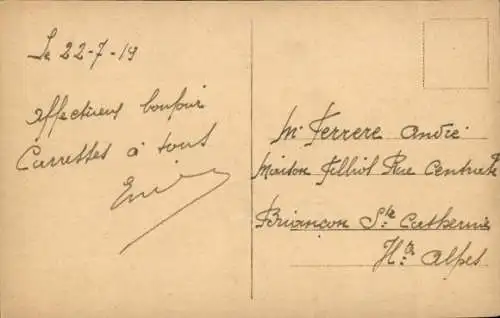 Le 22-7-19
affectueux bonjour
Carresses à tous
Mr Ferrere André
Maison Filliol Rue Centrale
Briançon Ste Catherine
Htes Alpes